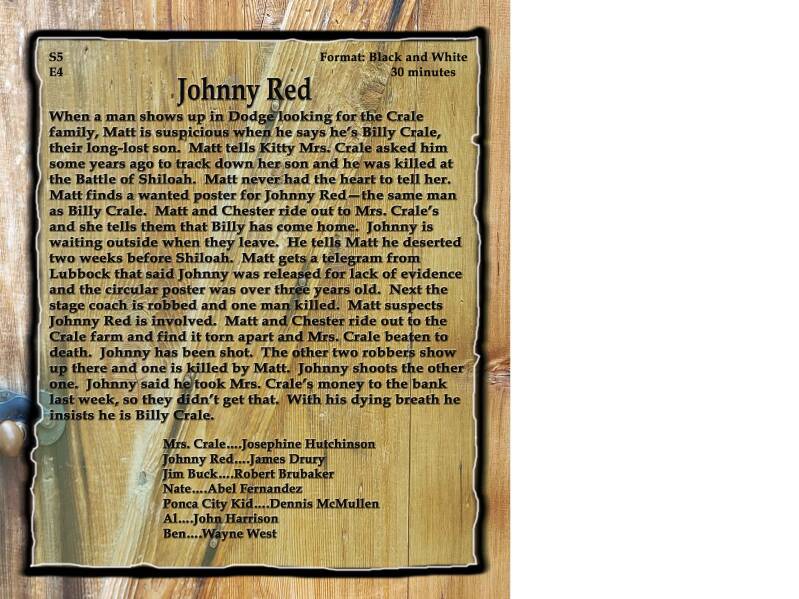 S5
Format: Black and White
E4
30 minutes
Johnny Red
When a man shows up in Dodge looking for the Crale
family, Matt is suspicious when he says he's Billy Crale,
their long-lost son.  Matt tells Kitty Mrs. Crale asked him
some years ago to track down her son and he was killed at
the Battle of Shiloah.  Matt never had the heart to tell her.
Matt finds a wanted poster for Johnny Red—the same man
as Billy Crale.  Matt and Chester ride out to Mrs. Crale's
and she tells them that Billy has come home.  Johnny is
waiting outside when they leave.  He tells Matt he deserted
two weeks before Shiloah.  Matt gets a telegram from
Lubbock that said Johnny was released for lack of evidence
and the circular poster was over three years old.  Next the
stage coach is robbed and one man killed.  Matt suspects
Johnny Red is involved.  Matt and Chester ride out to the
Crale farm and find it torn apart and Mrs. Crale beaten to
death.  Johnny has been shot.  The other two robbers show
up there and one is killed by Matt.  Johnny shoots the other
one.  Johnny said he took Mrs. Crale's money to the bank
last week, so they didn't get that.  With his dying breath he
insists he is Billy Crale.
Mrs. Crale....Josephine Hutchinson
Johnny Red....James Drury
Jim Buck....Robert Brubaker
Nate....Abel Fernandez
Ponca City Kid....Dennis McMullen
Al....John Harrison
Ben....Wayne West